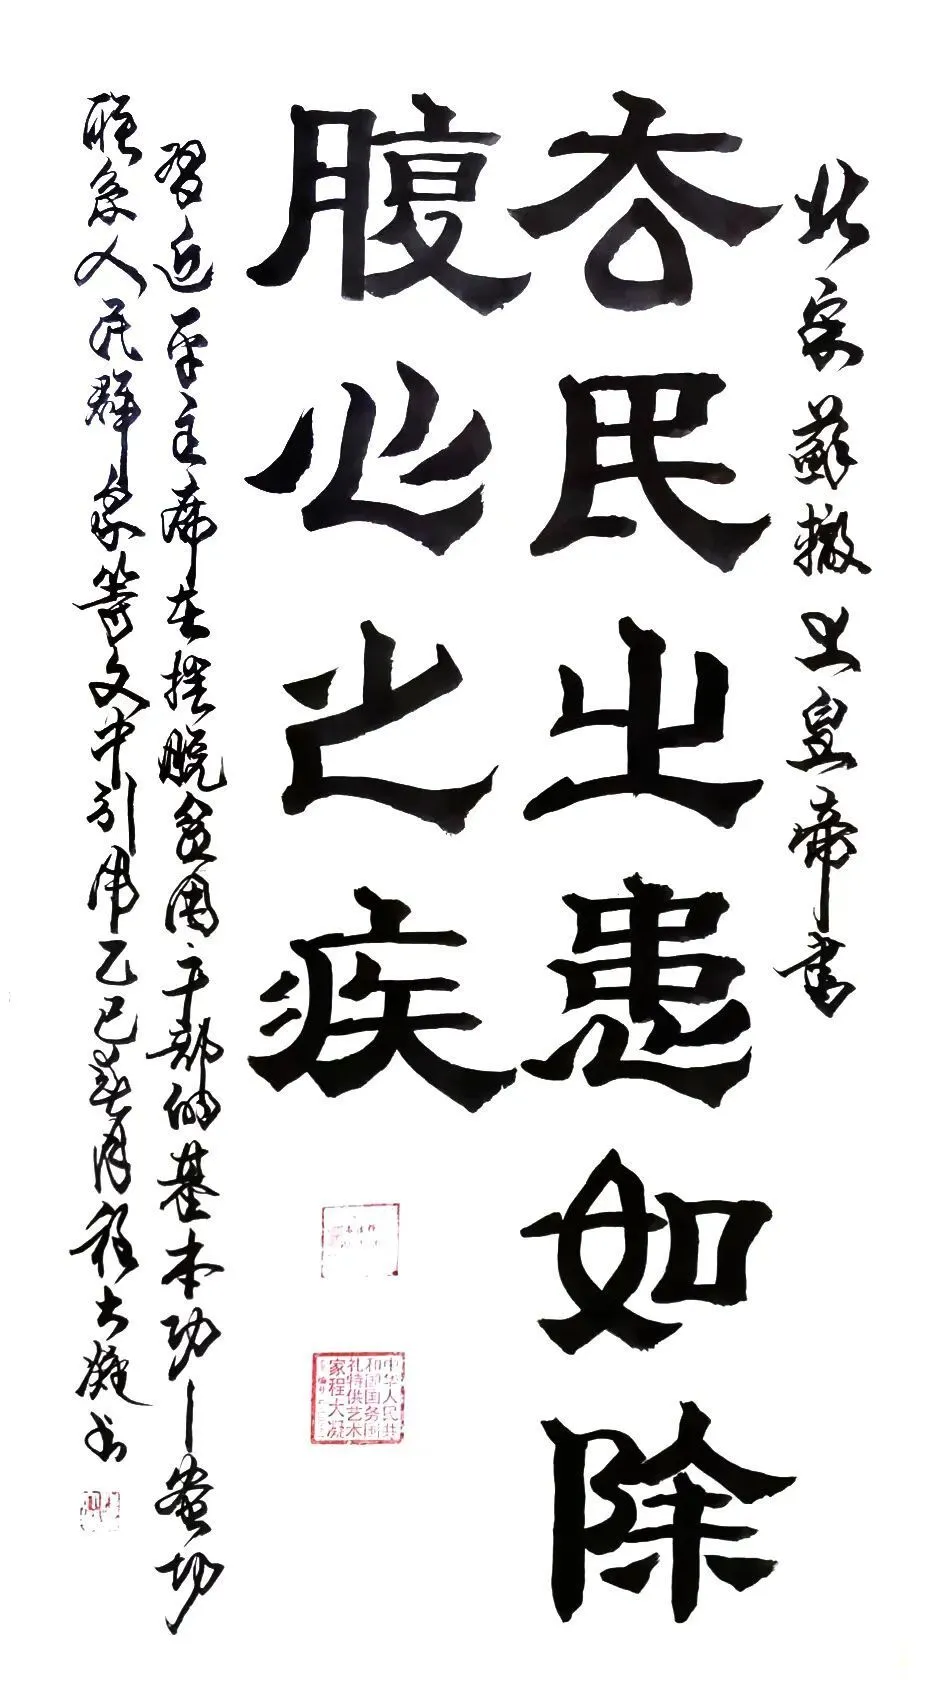 北宋蘇轍上皇帝書
去民之患如除
腹心之疾
習近平主席在摆脱贫困干部的基本功—密切
联系人民群众等文中引用乙巳春月程大凝书
中华人民共
和国国务国
礼特供艺术
家程大凝